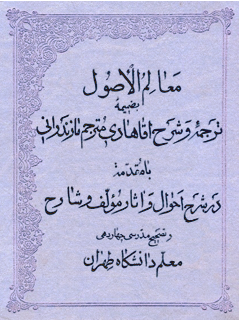 معالم الأصول
بضمیمهٔ
ترجمه و شرح آقاهادی مترجم مازندرانی
بامقدمهٔ
در شرح احوال و آثار مؤلف و شارح
و تصحیح مدرسی چهاردهی
معلم دانشگاه طهران